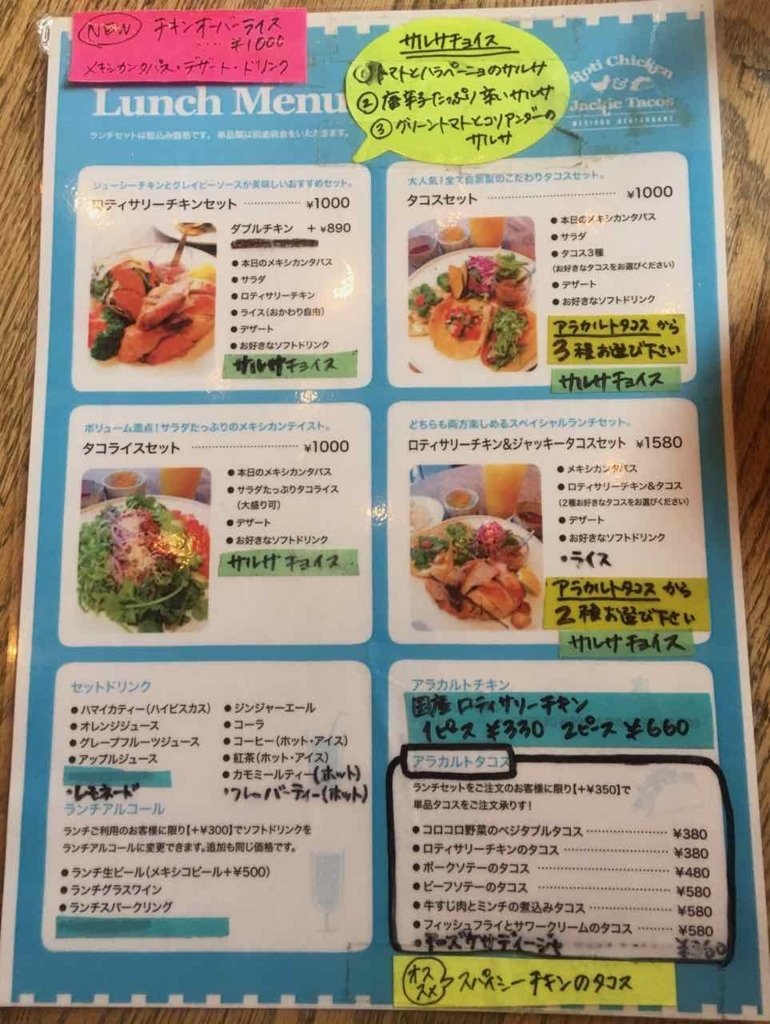 NEW チキンオーバーライス
‥‥ ¥1000
メキシカンタパス・デザート・ドリンク
サルサチョイス
① トマトとハラペーニョのサルサ
② 唐辛子たっぷり辛いサルサ
③ グリーントマトとコリアンダーの
サルサ
Roti Chicken
&
Jackie Tacos
MEXICAN RESTAURANT
Lunch Menu
ランチセットは税込み価格です。単品類は別途税金をいただきます。
ジューシーチキンとグレイビーソースが美味しいおすすめセット。
ロティサリーチキンセット ¥1000
ダブルチキン + ¥890
● 本日のメキシカンタパス
● サラダ
● ロティサリーチキン
● ライス（おかわり自由）
● デザート
● お好きなソフトドリンク
サルサチョイス
大人気！全て自家製のこだわりタコスセット。
タコスセット ¥1000
● 本日のメキシカンタパス
● サラダ
● タコス3種
（お好きなタコスをお選びください）
● デザート
● お好きなソフトドリンク
アラカルトタコス から
3種お選び下さい
サルサチョイス
ボリューム満点！サラダたっぷりのメキシカンテイスト。
タコライスセット ¥1000
● 本日のメキシカンタパス
● サラダたっぷりタコライス
（大盛り可）
● デザート
● お好きなソフトドリンク
サルサチョイス
どちらも両方楽しめるスペイシャルランチセット。
ロティサリーチキン&ジャッキータコスセット ¥1580
● メキシカンタパス
● ロティサリーチキン&タコス
（2種お好きなタコスをお選びください）
● デザート
● お好きなソフトドリンク
・ライス
アラカルトタコス から
2種お選び下さい
サルサチョイス
セットドリンク
● ハマイカティー（ハイビスカス）
● オレンジジュース
● グレープフルーツジュース
● アップルジュース
・レモネード
● ジンジャーエール
● コーラ
● コーヒー（ホット・アイス）
● 紅茶（ホット・アイス）
● カモミールティー(ホット)
・フレーバーティー(ホット)
ランチアルコール
ランチご利用のお客様に限り【+¥300】でソフトドリンクを
ランチアルコールに変更できます。追加も同じ価格です。
● ランチ生ビール（メキシコビール+¥500）
● ランチグラスワイン
● ランチスパークリング
アラカルトチキン
国産ロティサリーチキン
1ピース ¥330 2ピース ¥660
アラカルトタコス
ランチセットをご注文のお客様に限り【+¥350】で
単品タコスをご注文承りす！
● コロコロ野菜のベジタブルタコス ¥380
● ロティサリーチキンのタコス ¥380
● ポークソテーのタコス ¥480
● ビーフソテーのタコス ¥580
● 牛すじ肉とミンチの煮込みタコス ¥580
● フィッシュフライとサワークリームのタコス ¥580
・チーズケサディージャ
オススメ スパイシーチキンのタコス